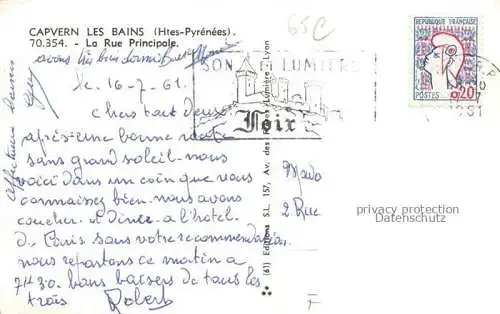 CAPVERN LES BAINS (Htes-Pyrénées).
70.354. - La Rue Principale.
65C
avons très bien dormi Bacs
le, 16-7-61.
Chers tout deux
après une bonne route
sans grand soleil nous
voici dans un coin que vous
connaissez bien. nous avons
coucher et diner a l'hotel
de Paris sans votre recommendation
nous repartons ce matin a
7H30. bons baisers de tous les
trois Robert
Affectueux baisers
SON ET LUMIERE
Foix
REPUBLIQUE FRANÇAISE
POSTES 0,20
(61) Editions S.L. 157, Av. des Frères-Lumière Lyon
2 Rue
privacy protection
Datenschutz
F